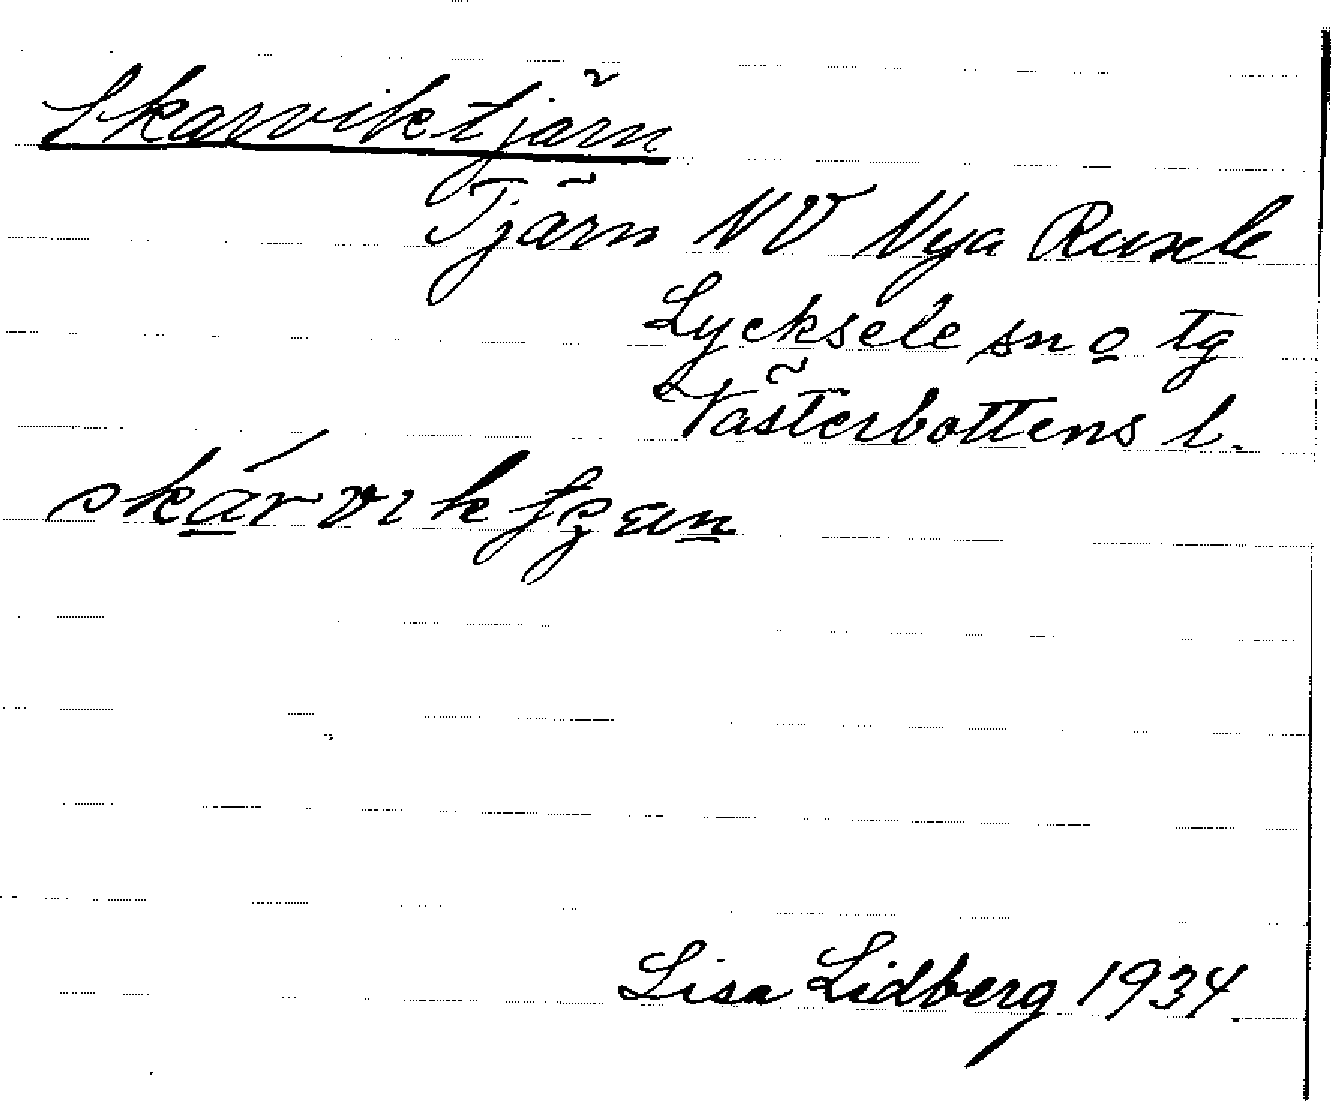 Skarviktjärn
Tjärn NV Nya Rusele
Lycksele sn o tg
Västerbottens l.
Lisa Lidberg 1934